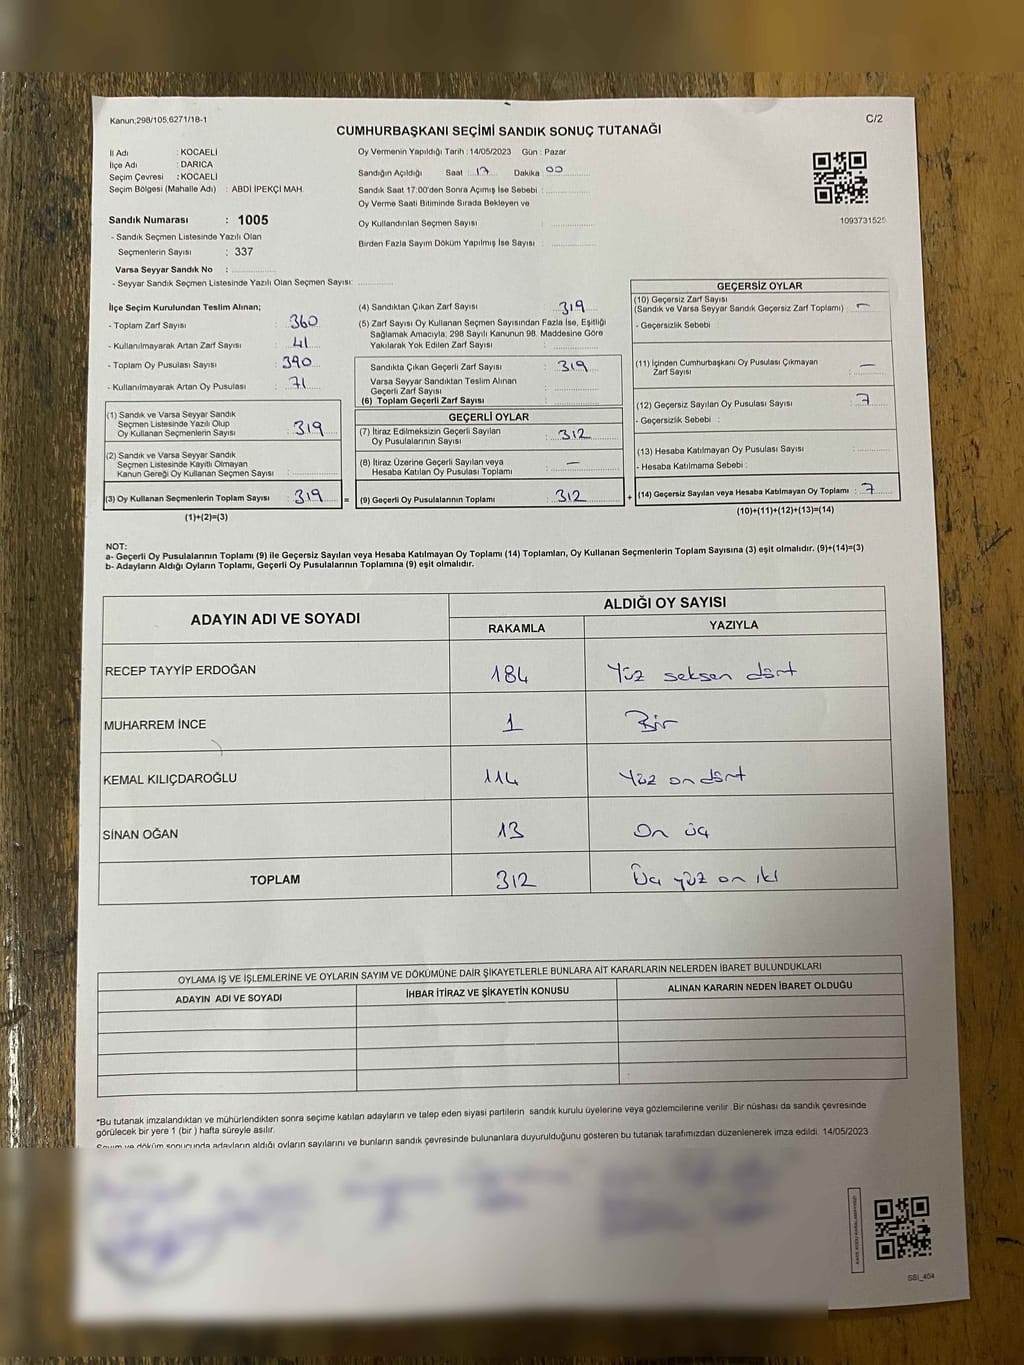 Kanun;298/105;6271/18-1
C/2
CUMHURBAŞKANI SEÇİMİ SANDIK SONUÇ TUTANAĞI
İl Adı : KOCAELİ
İlçe Adı : DARICA
Seçim Çevresi : KOCAELİ
Seçim Bölgesi (Mahalle Adı) : ABDİ İPEKÇİ MAH.
Sandık Numarası : 1005
- Sandık Seçmen Listesinde Yazılı Olan
Seçmenlerin Sayısı : 337
Varsa Seyyar Sandık No :
- Seyyar Sandık Seçmen Listesinde Yazılı Olan Seçmen Sayısı:
Oy Vermenin Yapıldığı Tarih :14/05/2023 Gün : Pazar
Sandığın Açıldığı Saat : 17 Dakika : 00
Sandık Saat 17:00'den Sonra Açımış İse Sebebi :
Oy Verme Saati Bitiminde Sırada Bekleyen ve
Oy Kullandırılan Seçmen Sayısı :
Birden Fazla Sayım Döküm Yapılmış İse Sayısı :
1093731525
İlçe Seçim Kurulundan Teslim Alınan;
- Toplam Zarf Sayısı : 360
- Kullanılmayarak Artan Zarf Sayısı : 41
- Toplam Oy Pusulası Sayısı : 390
- Kullanılmayarak Artan Oy Pusulası : 71
(1) Sandık ve Varsa Seyyar Sandık
Seçmen Listesinde Yazılı Olup
Oy Kullanan Seçmenlerin Sayısı : 319
(2) Sandık ve Varsa Seyyar Sandık
Seçmen Listesinde Kayıtlı Olmayan
Kanun Gereği Oy Kullanan Seçmen Sayısı :
(3) Oy Kullanan Seçmenlerin Toplam Sayısı : 319 =
(1)+(2)=(3)
(4) Sandıktan Çıkan Zarf Sayısı : 319
(5) Zarf Sayısı Oy Kullanan Seçmen Sayısından Fazla İse, Eşitliği
Sağlamak Amacıyla; 298 Sayılı Kanunun 98. Maddesine Göre
Yakılarak Yok Edilen Zarf Sayısı :
Sandıkta Çıkan Geçerli Zarf Sayısı : 319
Varsa Seyyar Sandıktan Teslim Alınan
Geçerli Zarf Sayısı :
(6) Toplam Geçerli Zarf Sayısı :
GEÇERLİ OYLAR
(7) İtiraz Edilmeksizin Geçerli Sayılan
Oy Pusulalarının Sayısı : 312
(8) İtiraz Üzerine Geçerli Sayılan veya
Hesaba Katılan Oy Pusulası Toplamı : —
(9) Geçerli Oy Pusulalarının Toplamı : 312 +
GEÇERSİZ OYLAR
(10) Geçersiz Zarf Sayısı
(Sandık ve Varsa Seyyar Sandık Geçersiz Zarf Toplamı) : —
- Geçersizlik Sebebi :
(11) İçinden Cumhurbaşkanı Oy Pusulası Çıkmayan
Zarf Sayısı : —
(12) Geçersiz Sayılan Oy Pusulası Sayısı : 7
- Geçersizlik Sebebi :
(13) Hesaba Katılmayan Oy Pusulası Sayısı :
- Hesaba Katılmama Sebebi :
(14) Geçersiz Sayılan veya Hesaba Katılmayan Oy Toplamı : 7
(10)+(11)+(12)+(13)=(14)
NOT:
a- Geçerli Oy Pusulalarının Toplamı (9) ile Geçersiz Sayılan veya Hesaba Katılmayan Oy Toplamı (14) Toplamları, Oy Kullanan Seçmenlerin Toplam Sayısına (3) eşit olmalıdır. (9)+(14)=(3)
b- Adayların Aldığı Oyların Toplamı, Geçerli Oy Pusulalarının Toplamına (9) eşit olmalıdır.
ADAYIN ADI VE SOYADI
ALDIĞI OY SAYISI
RAKAMLA YAZIYLA
RECEP TAYYİP ERDOĞAN 184 Yüz seksen dört
MUHARREM İNCE 1 Bir
KEMAL KILIÇDAROĞLU 114 Yüz on dört
SİNAN OĞAN 13 On üç
TOPLAM 312 Üç yüz on iki
OYLAMA İŞ VE İŞLEMLERİNE VE OYLARIN SAYIM VE DÖKÜMÜNE DAİR ŞİKAYETLERLE BUNLARA AİT KARARLARIN NELERDEN İBARET BULUNDUKLARI
ADAYIN ADI VE SOYADI İHBAR İTİRAZ VE ŞİKAYETİN KONUSU ALINAN KARARIN NEDEN İBARET OLDUĞU
*Bu tutanak imzalandıktan ve mühürlendikten sonra seçime katılan adayların ve talep eden siyasi partilerin sandık kurulu üyelerine veya gözlemcilerine verilir. Bir nüshası da sandık çevresinde
görülecek bir yere 1 (bir ) hafta süreyle asılır.
Sayım ve döküm sonucunda adayların aldığı oyların sayılarını ve bunların sandık çevresinde bulunanlara duyurulduğunu gösteren bu tutanak tarafımızdan düzenlenerek imza edildi. 14/05/2023
SSİ_404